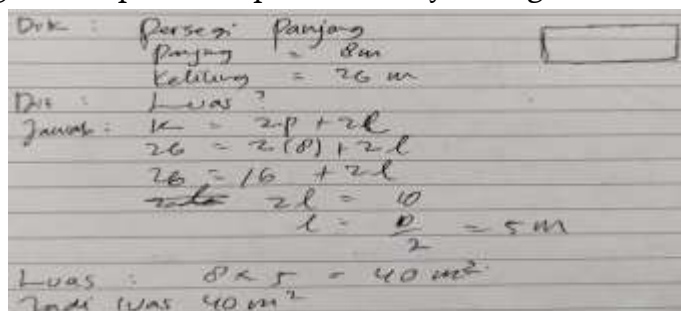 Dik : Persegi Panjang
Panjang = 8m
Keliling = 26 m
Dit : Luas ?
Jawab : K = 2p + 2l
26 = 2(8) + 2l
26 = 16 + 2l
2l = 10
l = 10/2 = 5 m
Luas : 8 x 5 = 40 m²
Jadi luas 40 m²